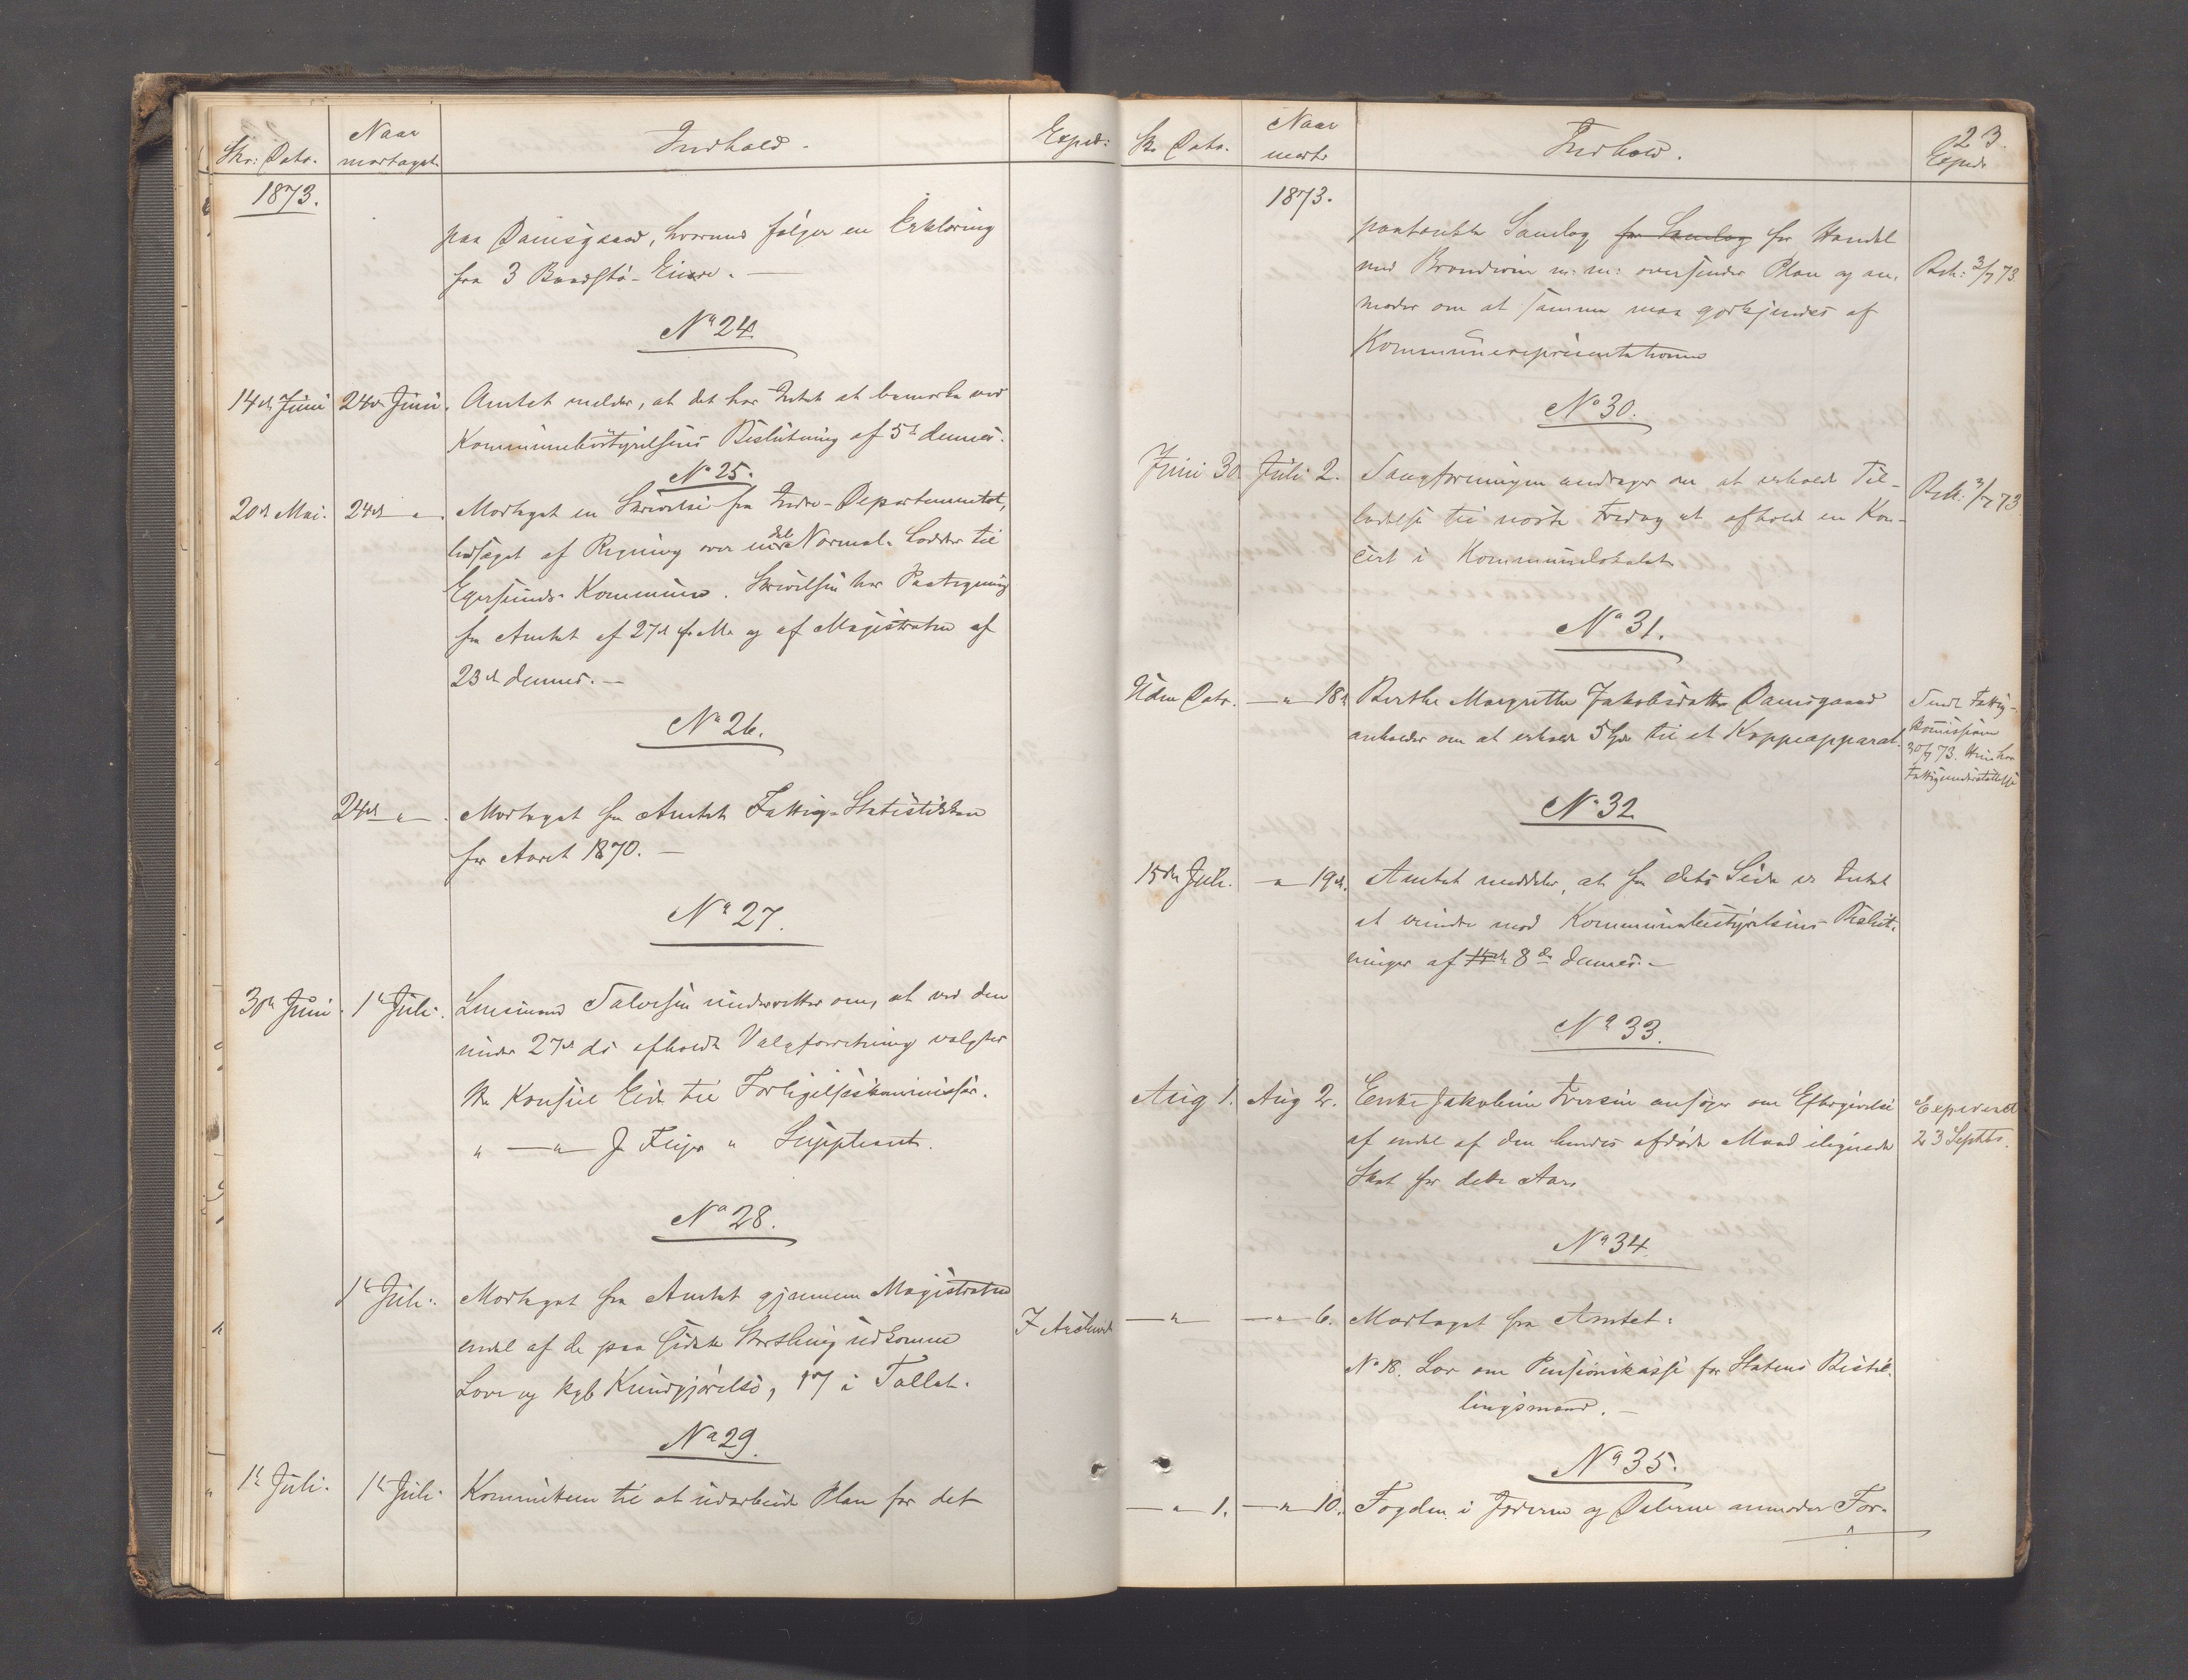 Skr: Dato.
Naar modtaget.
Indhold.
Exped:
1873.
paa Damsgaard, hvormed følger en Erklæring
fra 3 Baadstø-Eiere. —
No 24.
14de Juni
24de Juni.
Amtet melder, at det har Intet at bemærke ved
Kommunebestyrelsens Beslutning af 5te dennes.
No 25.
20de Mai.
24de "
Modtaget en Skrivelse fra Indre-Departementet,
ledsaget af Regning over Normal-Lodder til
Egersunds Kommune. Skrivelsen har Paategning
fra Amtet af 27de f. M. og af Magistraten af
23de dennes. —
No 26.
24de " .
Modtaget fra Amtet Fattig-Statistikken
for Aaret 1870. —
No 27.
30te Juni.
1ste Juli.
Lensmand Salvesen underretter om, at ved den
under 27de ds afholdte Valgforretning valgtes
Hr Konsul Eide til Forligelseskommissær.
" — " J Feyer " Suppleant.
No 28.
1ste Juli.
Modtaget fra Amtet gjennem Magistraten
endel af de paa sidste Storthing udkomne
Love og kgl. Kundgjørelse, 17 i Tallet.
I Archivet
No 29.
1ste Juli.
1ste Juli.
Kommiteen til at udarbeide Plan for det
23.
Skr Dato.
Naar modt.
Indhold.
Exped.
1873.
paatænkte Samlag for Samlag for Handel
med Brændevin m: m: oversender Plan og an-
moder om at samme maa godkjendes af
Kommunerepræsentationen
Besk: 3/7 73.
No 30.
Juni 30
Juli 2.
Sangforeningen andrager om at erholde Til-
ladelse til næste Fredag at afholde en Kon-
cert i Kommunelokalet
Besk: 3/7 73.
No 31.
Uden Dato.
— " 18de
Berthe Margrethe Jakobsdatter Damsgaard
anholder om at erholde 5 Spd. til et Koppeapparat.
Sendt Fattig-
kommissionen
30/7 73. Hun har
Fattigunderstøttelse
No 32.
15de Juli.
— " 19de.
Amtet meddeler, at fra dets Side er Intet
at erindre mod Kommunebestyrelsens Beslut-
ninger af 8de dennes. —
No 33.
Aug 1.
Aug 2.
Enke Jakobine Iversen ansøger om Eftergivelse
af endel af den hendes afdøde Mand ilignede
Skat for dette Aar.
Expederet
23 Septbr.
No 34.
— "
— " 6.
Modtaget fra Amtet:
No 18. Lov om Pensionskasse for Statens Bestil-
lingsmænd. —
No 35.
— " 1.
— " 10.
Fogden i Jæderen og Dalerne anmoder For-